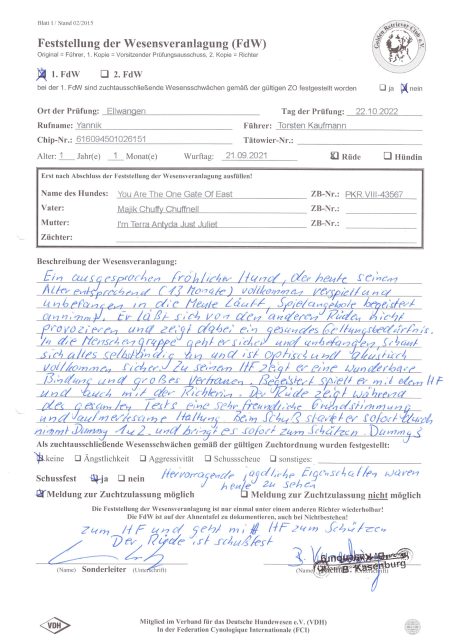 Blatt 1 / Stand 02/2015
Feststellung der Wesensveranlagung (FdW)
Original = Führer, 1. Kopie = Vorsitzender Prüfungsausschuss, 2. Kopie = Richter
Golden Retriever Club e.V.
☒ 1. FdW ☐ 2. FdW
bei der 1. FdW sind zuchtausschliessende Wesensschwächen gemäß der gültigen ZO festgestellt worden ☐ ja ☒ nein
Ort der Prüfung: Ellwangen Tag der Prüfung: 22.10.2022
Rufname: Yannik Führer: Torsten Kaufmann
Chip-Nr.: 616094501026151 Tätowier-Nr.:
Alter: 1 Jahr(e) 1 Monat(e) Wurftag: 21.09.2021 ☒ Rüde ☐ Hündin
Erst nach Abschluss der Feststellung der Wesensveranlagung ausfüllen!
Name des Hundes: You Are The One Gate Of East ZB-Nr.: PKR.VIII-43567
Vater: Majik Chuffy Chuffnell ZB-Nr.:
Mutter: I'm Terra Antyda Just Juliet ZB-Nr.:
Züchter:
Beschreibung der Wesensveranlagung:
Ein ausgesprochen fröhlicher Hund, der heute seinem
Alter entsprechend (13 Monate) vollkommen verspielt und
unbefangen in die Meute läuft, Spielangebote begeistert
annimmt. Er läßt sich von den anderen Rüden nicht
provozieren und zeigt dabei ein gesundes Geltungsbedürfnis.
In die Menschengruppe geht er sicher und unbefangen, schaut
sich alles selbständig an und ist optisch und akustisch
vollkommen sicher. Zu seinem HF zeigt er eine wunderbare
Bindung und großes Vertrauen. Begeistert spielt er mit dem HF
und auch mit der Richterin. Der Rüde zeigt während
des gesamten Tests eine sehr freundliche Grundstimmung
und aufmerksame Haltung. Beim Schuß startet er sofort durch
nimmt Dummy 1 u 2 und bringt es sofort zum Schützen. Dummy 3
Als zuchtausschließende Wesensschwächen gemäß der gültigen Zuchtordnung wurden festgestellt:
☒ keine ☐ Ängstlichkeit ☐ Aggressivität ☐ Schussscheue ☐ sonstiges:
Schussfest ☒ ja ☐ nein Hervorragende jagdliche Eigenschaften waren
heute zu sehen
☒ Meldung zur Zuchtzulassung möglich ☐ Meldung zur Zuchtzulassung nicht möglich
Die Feststellung der Wesensveranlagung ist nur einmal unter einem anderen Richter wiederholbar!
Die FdW ist auf der Ahnentafel zu dokumentieren, auch bei Nichtbestehen!
zum HF und geht mit HF zum Schützen
Der Rüde ist schußfest
(Name) Sonderleiter (Unterschrift) (Name) (Unterschrift)
B. Kasenburg
VDH
Mitglied im Verband für das Deutsche Hundewesen e.V. (VDH)
In der Federation Cynologique Internationale (FCI)